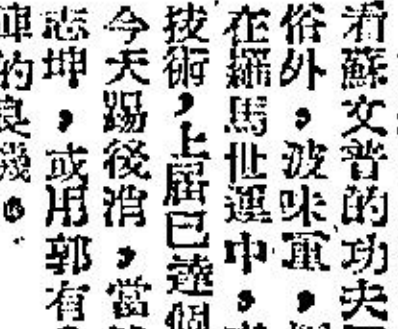 看蘇文普的功夫
俗外，波味軍，
在羅馬世運中，
技術，上屆已達個
今天踢後消，當
志坤，或用郭有
的良機。